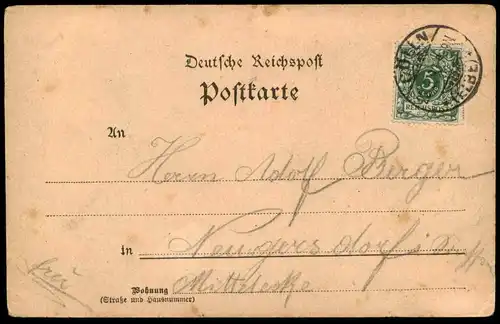 Deutsche Reichspost
Postkarte
5
REICHSPOST
An
Herrn Adolf Berger
in Neugersdorf i. S
Wohnung
(Straße und Hausnummer)
frei